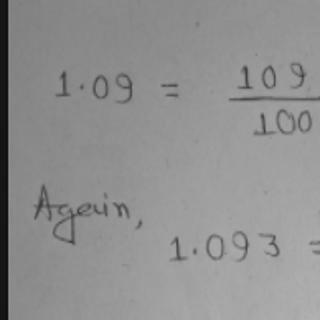 1.09 = 109/100
Again,
1.093 =